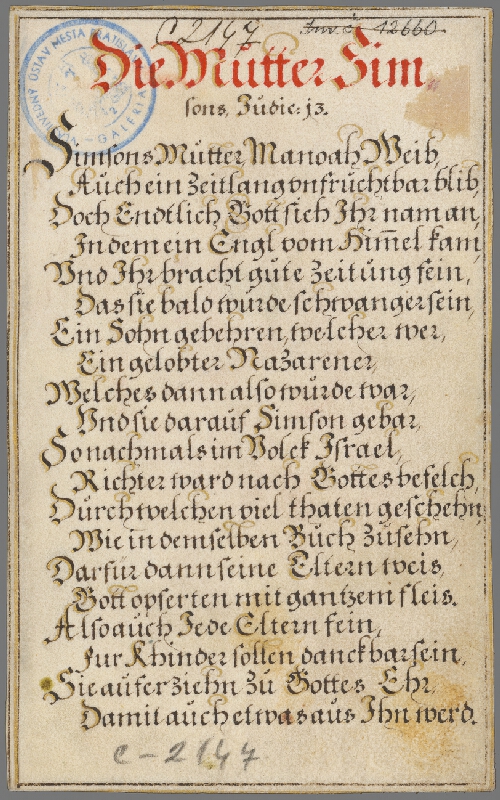 C 2147 Inv. č. 12660
Die Mütter Sim
sons, Judic: 13.
Simsons Mütter Manoah Weib,
Auch ein Zeitlang vnfruchtbar blib,
Doch Endtlich Gott sich Ihr nam an,
In dem ein Engl vom Him̄el kam,
Vnd Ihr bracht güte Zeitüng fein,
Das sie bald würde schwanger sein,
Ein Sohn gebehren, welcher wer,
Ein gelobter Nazarener,
Welches dann also würde war,
Vnd sie darauf Simson gebar,
So nachmals im Volck Israel,
Richter ward nach Gottes befelch,
Dürch welchen viel thaten geschehn,
Wie in demselben Büch Züsehn,
Darfür dann seine Eltern weis,
Gott opferten mit gantzem fleis.
Also auch Jede Eltern fein,
Für Khinder sollen danckbar sein,
Sie auferziehn Zü Gottes Ehr,
Damit auch etwas aüs Ihn werd.
C-2147